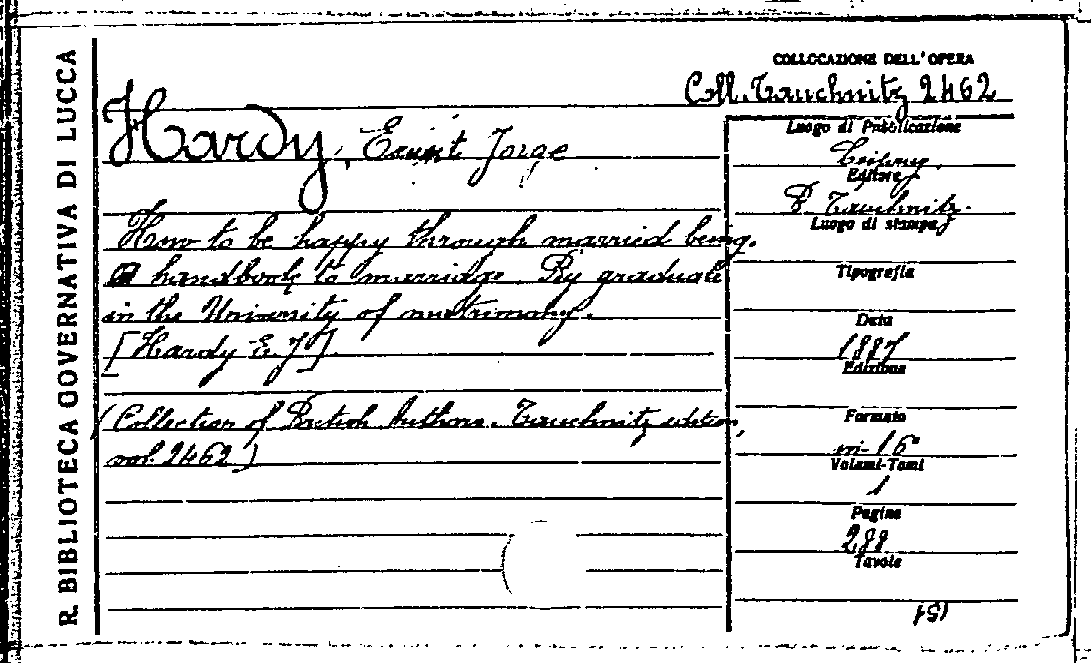 R. BIBLIOTECA GOVERNATIVA DI LUCCA
COLLOCAZIONE DELL'OPERA
Coll. Tauchnitz 2462
Hardy, Ernest Jorge
How to be happy through married being.
A handbook to marriage. By graduate
in the University of matrimony.
[Hardy E. J.]
(Collection of British Authors. Tauchnitz edition,
vol. 2462)
Luogo di Pubblicazione
Leipzig.
Editore
B. Tauchnitz.
Luogo di stampa
Tipografia
Data
1887
Edizione
Formato
in-16°
Volumi-Tomi
1
Pagine
288
Tavole
151